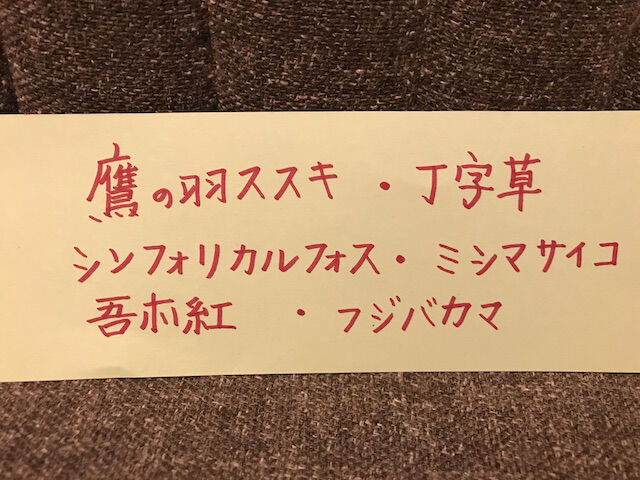 鷹の羽ススキ・丁字草
シンフォリカルフォス・ミシマサイコ
吾木紅・フジバカマ